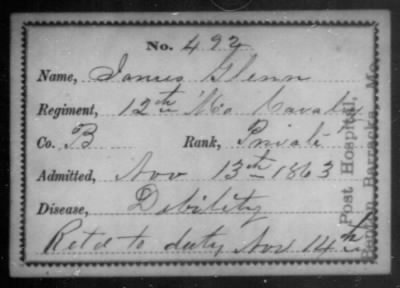 No. 492
Name, James Glenn
Regiment, 12th Mo Cavalry
Co. B Rank, Private
Admitted, Nov 13th 1863
Disease, Debility
Retd to duty Nov. 14th
Post Hospital,
Benton Barracks, Mo.